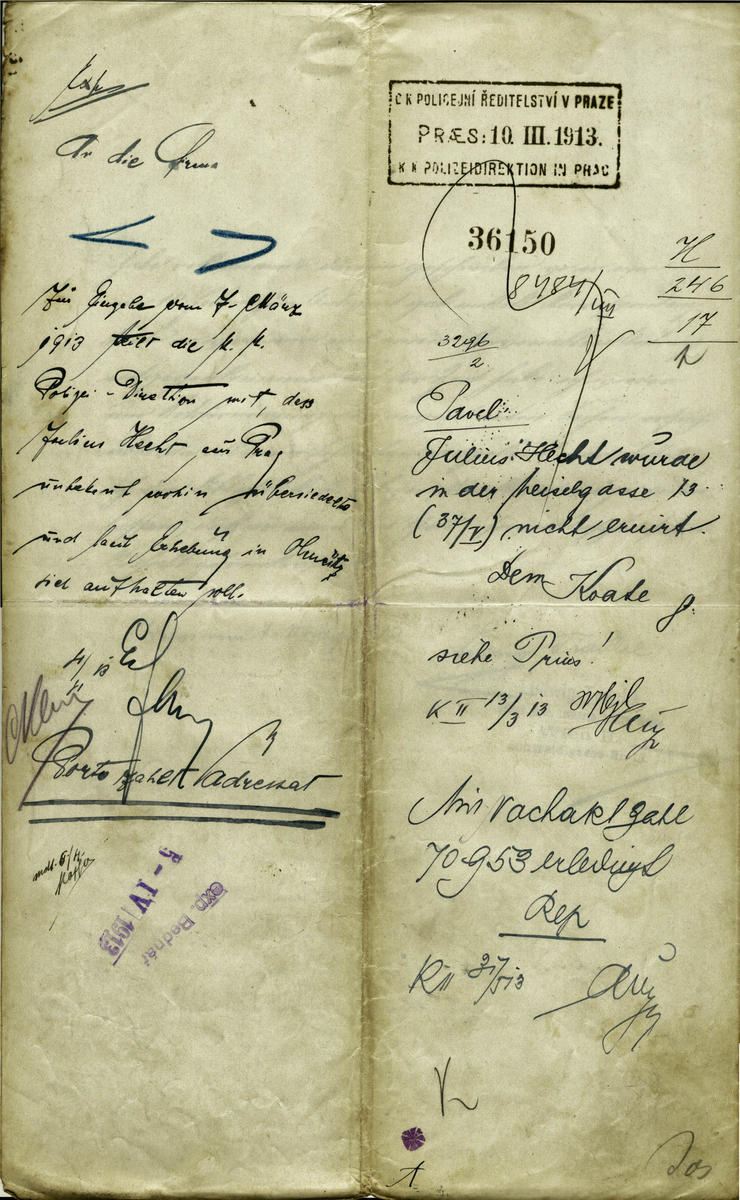 An die Firma
Zur Eingabe vom 7. März
1913 teilt die k. k.
Polizei-Direktion mit, dass
Julius Hecht aus Prag
unbekannt wohin übersiedelte
und laut Erhebung in Olmütz
sich aufhalten soll.
4/ 13
Porto zahlt Adressat
5 - IV 1913
exp. Bednář
C K POLICEJNÍ ŘEDITELSTVÍ V PRAZE
PRÆS: 10. III. 1913.
K K POLIZEIDIREKTION IN PRAG
36150
8484/VIII
H
246
17
3296
2.
Pavel
Julius Hecht wurde
in der Meiselgasse 13
(37/V) nicht eruirt.
Dem Koate
siehe Prius!
K II 13/3 13
Mit Vachaktzahl
70953 erledigt
Rep
K II